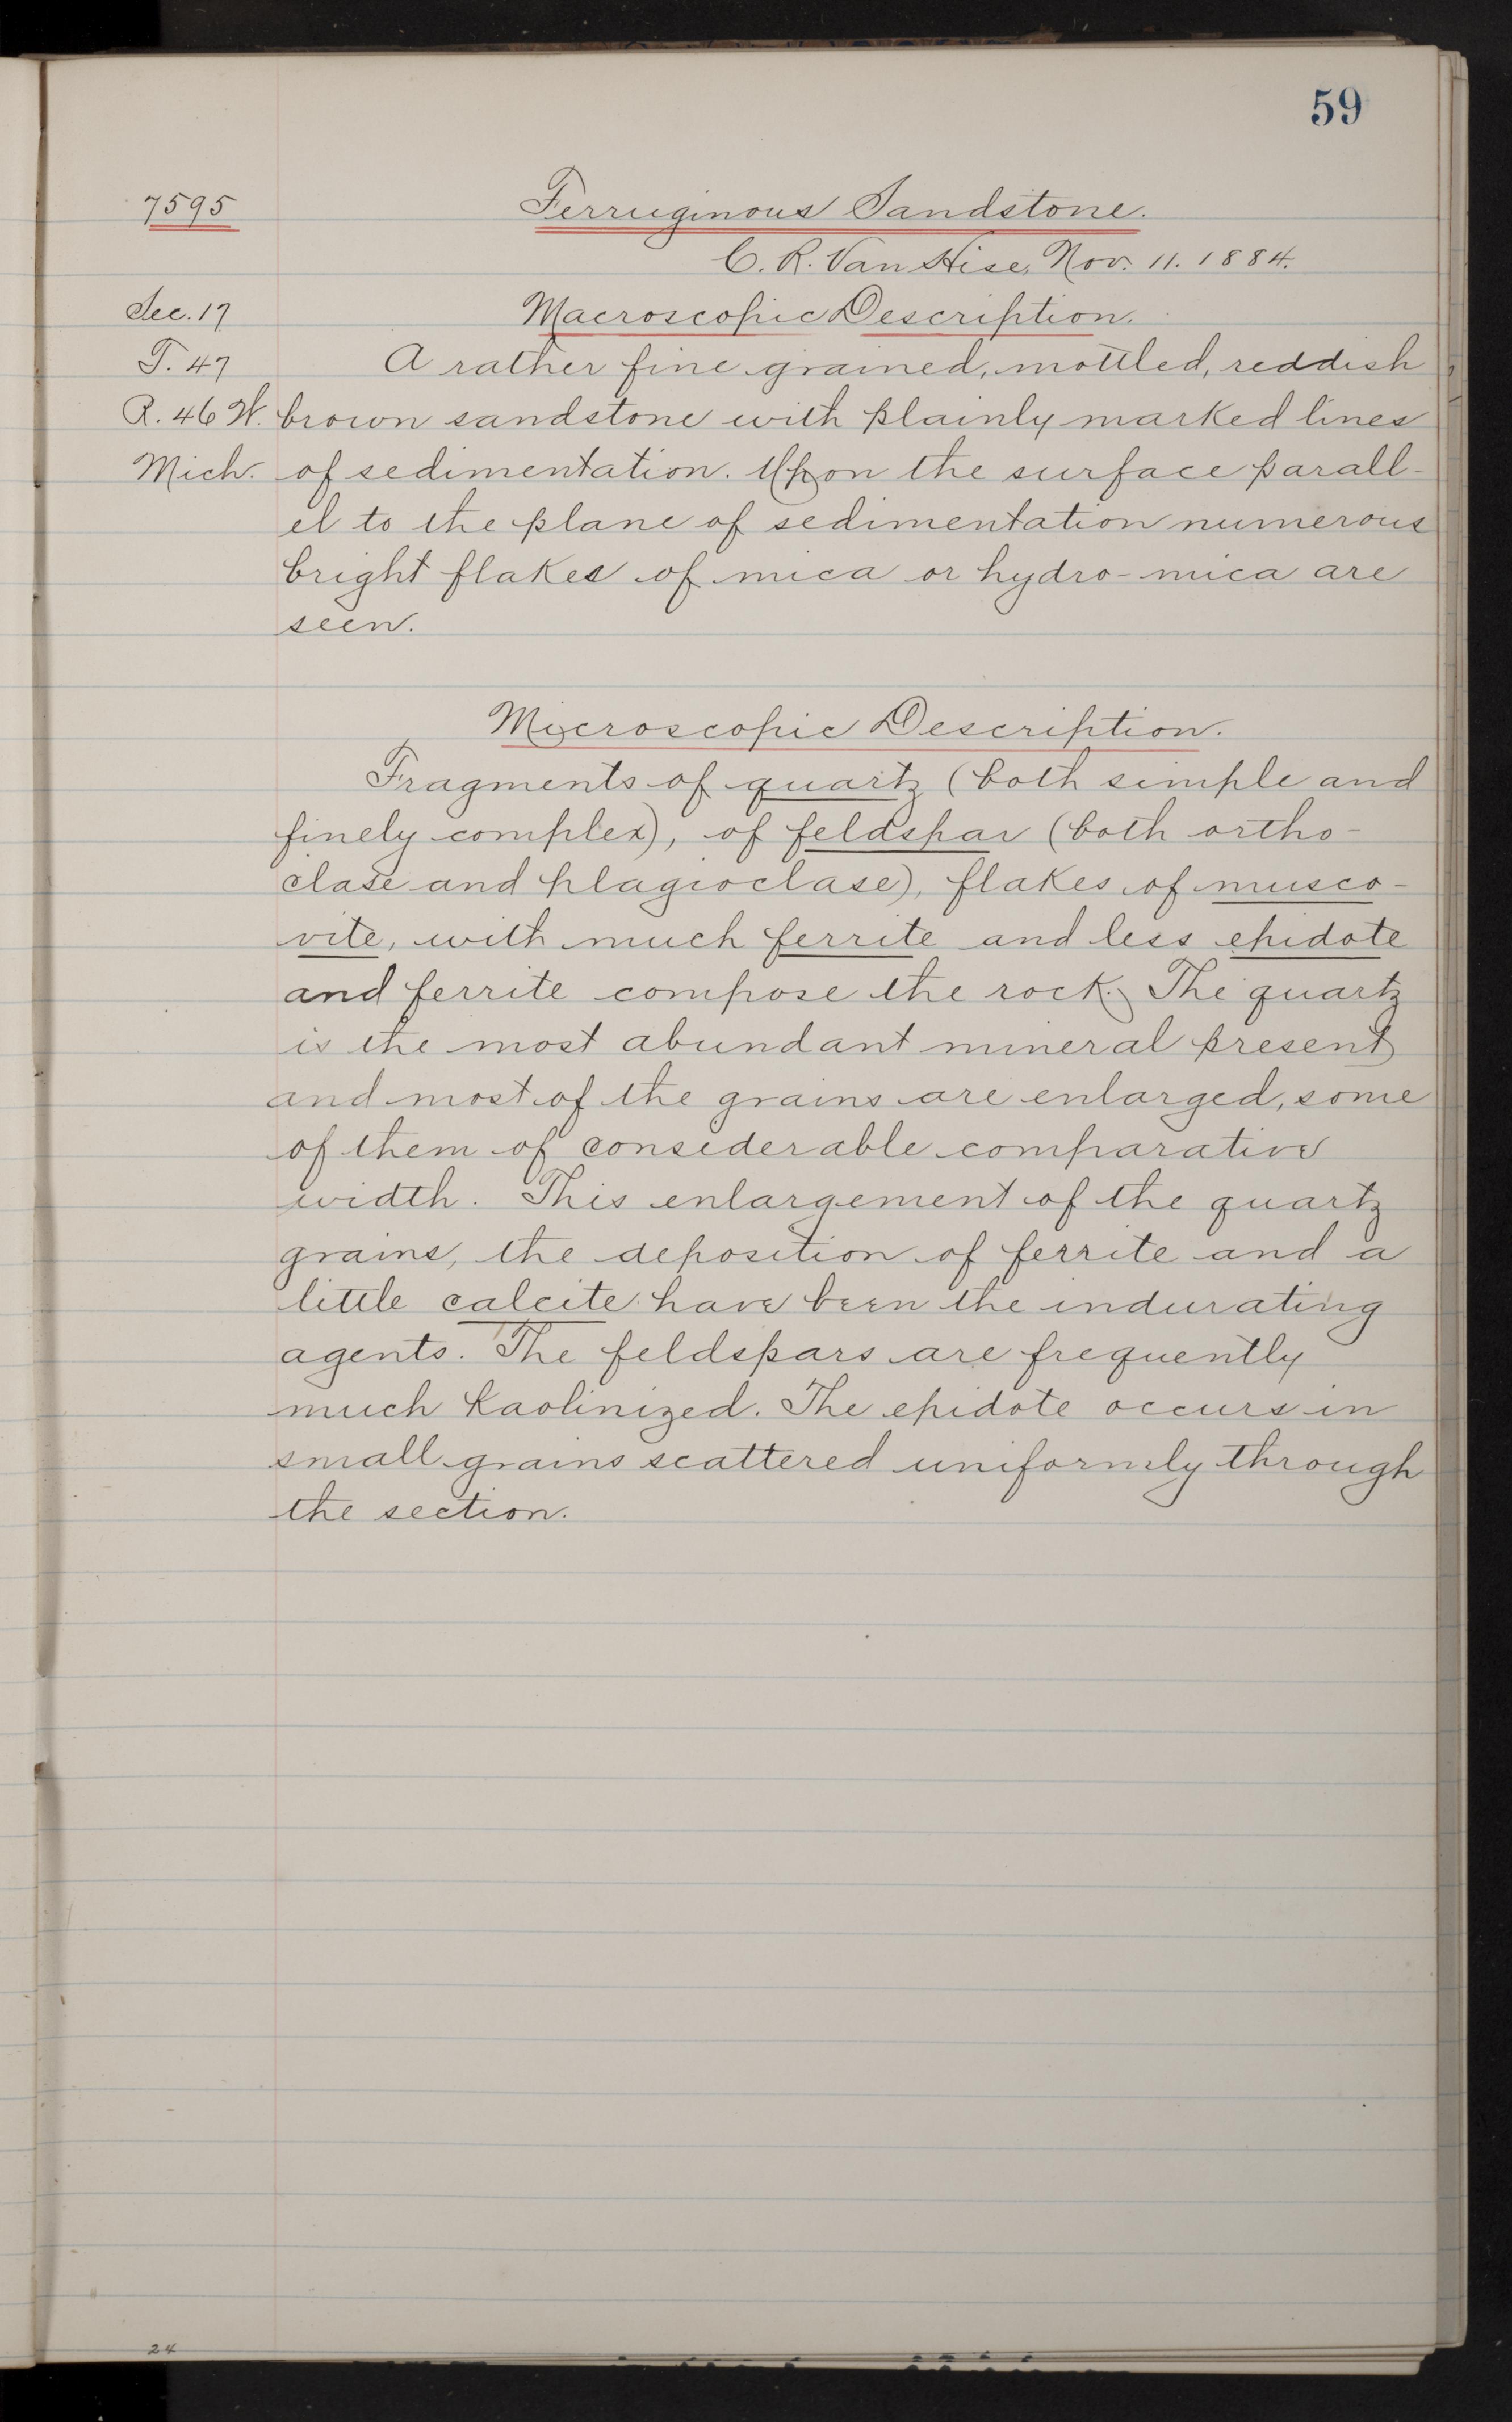 59
7595 Ferruginous Sandstone.
C. R. Van Hise, Nov. 11. 1884.
Sec. 17 Macroscopic Description.
T. 47 A rather fine grained, mottled, reddish
R. 46 W. brown sandstone with plainly marked lines
Mich. of sedimentation. Upon the surface parall-
el to the plane of sedimentation numerous
bright flakes of mica or hydro-mica are
seen.
Microscopic Description.
Fragments of quartz (both simple and
finely complex), of feldspar (both ortho-
clase and plagioclase), flakes of musco-
vite, with much ferrite and less epidote
and ferrite compose the rock. The quartz
is the most abundant mineral present
and most of the grains are enlarged, some
of them of considerable comparative
width. This enlargement of the quartz
grains, the deposition of ferrite and a
little calcite have been the indurating
agents. The feldspars are frequently
much kaolinized. The epidote occurs in
small grains scattered uniformly through
the section.
24